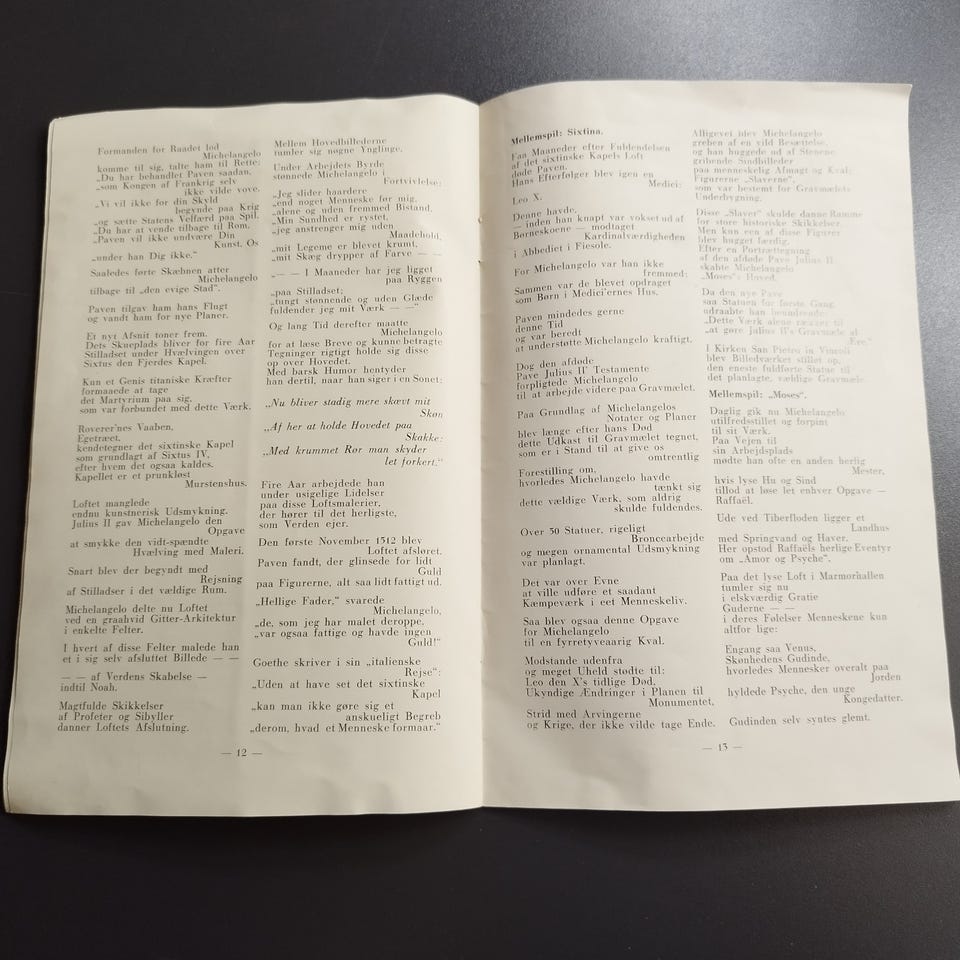 Formanden for Raadet lod
Michelangelo
komme til sig, talte ham til Rette:
„Du har behandlet Paven saadan,
„som Kongen af Frankrig selv
ikke vilde vove.
„Vi vil ikke for din Skyld
begynde paa Krig
„og sætte Statens Velfærd paa Spil.
„Du har at vende tilbage til Rom.
„Paven vil ikke undvære Din
Kunst. Os
„under han Dig ikke.“
Saaledes førte Skæbnen atter
Michelangelo
tilbage til „den evige Stad“.
Paven tilgav ham hans Flugt
og vandt ham for nye Planer.
Et nyt Afsnit toner frem.
Dets Skueplads bliver for fire Aar
Stilladset under Hvælvingen over
Sixtus den Fjerdes Kapel.
Kun et Genis titaniske Kræfter
formaaede at tage
det Martyrium paa sig,
som var forbundet med dette Værk.
Roverer'nes Vaaben,
Egetræet,
kendetegner det sixtinske Kapel
som grundlagt af Sixtus IV,
efter hvem det ogsaa kaldes.
Kapellet er et prunkløst
Murstenshus.
Loftet manglede
endnu kunstnerisk Udsmykning.
Julius II gav Michelangelo den
Opgave
at smykke den vidt-spændte
Hvælving med Maleri.
Snart blev der begyndt med
Rejsning
af Stilladser i det vældige Rum.
Michelangelo delte nu Loftet
ved en graahvid Gitter-Arkitektur
i enkelte Felter.
I hvert af disse Felter malede han
et i sig selv afsluttet Billede — —
— — af Verdens Skabelse —
indtil Noah.
Magtfulde Skikkelser
af Profeter og Sibyller
danner Loftets Afslutning.
Mellem Hovedbillederne
tumler sig nøgne Ynglinge.
Under Arbejdets Byrde
stønnede Michelangelo i
Fortvivlelse:
„Jeg slider haardere
„end noget Menneske før mig,
„alene og uden fremmed Bistand.
„Min Sundhed er rystet,
„jeg anstrenger mig uden
Maadehold,
„mit Legeme er blevet krumt,
„mit Skæg drypper af Farve — —
„— — I Maaneder har jeg ligget
paa Ryggen
„paa Stilladset;
„tungt stønnende og uden Glæde
fuldender jeg mit Værk — —“
Og lang Tid derefter maatte
Michelangelo
for at læse Breve og kunne betragte
Tegninger rigtigt holde sig disse
op over Hovedet.
Med barsk Humor hentyder
han dertil, naar han siger i en Sonet:
„Nu bliver stadig mere skævt mit
Skøn
„Af her at holde Hovedet paa
Skakke:
„Med krummet Rør man skyder
let forkert.“
Fire Aar arbejdede han
under usigelige Lidelser
paa disse Loftsmalerier,
der hører til det herligste,
som Verden ejer.
Den første November 1512 blev
Loftet afsløret.
Paven fandt, der glinsede for lidt
Guld
paa Figurerne, alt saa lidt fattigt ud.
„Hellige Fader,“ svarede
Michelangelo,
„de, som jeg har malet deroppe,
„var ogsaa fattige og havde ingen
Guld!“
Goethe skriver i sin „italienske
Rejse“:
„Uden at have set det sixtinske
Kapel
„kan man ikke gøre sig et
anskueligt Begreb
„derom, hvad et Menneske formaar.“
— 12 —
Mellemspil: Sixtina.
Faa Maaneder efter Fuldendelsen
af det sixtinske Kapels Loft
døde Paven.
Hans Efterfølger blev igen en
Medici:
Leo X.
Denne havde,
— inden han knapt var vokset ud af
Børneskoene — modtaget
Kardinalværdigheden
i Abbediet i Fiesole.
For Michelangelo var han ikke
fremmed;
Sammen var de blevet opdraget
som Børn i Medici'ernes Hus.
Paven mindedes gerne
denne Tid
og var beredt
at understøtte Michelangelo kraftigt.
Dog den afdøde
Pave Julius II' Testamente
forpligtede Michelangelo
til at arbejde videre paa Gravmælet.
Paa Grundlag af Michelangelos
Notater og Planer
blev længe efter hans Død
dette Udkast til Gravmælet tegnet,
som er i Stand til at give os
omtrentlig
Forestilling om,
hvorledes Michelangelo havde
tænkt sig
dette vældige Værk, som aldrig
skulde fuldendes.
Over 50 Statuer, rigeligt
Broncearbejde
og megen ornamental Udsmykning
var planlagt.
Det var over Evne
at ville udføre et saadant
Kæmpeværk i eet Menneskeliv.
Saa blev ogsaa denne Opgave
for Michelangelo
til en fyrretyveaarig Kval.
Modstande udenfra
og meget Uheld stødte til:
Leo den X's tidlige Død,
Ukyndige Ændringer i Planen til
Monumentet,
Strid med Arvingerne
og Krige, der ikke vilde tage Ende.
Alligevel blev Michelangelo
greben af en vild Besættelse,
og han huggede ud af Stenene
gribende Sindbilleder
paa menneskelig Afmagt og Kval:
Figurerne „Slaverne“,
som var bestemt for Gravmælets
Underbygning.
Disse „Slaver“ skulde danne Ramme
for store historiske Skikkelser.
Men kun een af disse Figurer
blev hugget færdig.
Efter en Portrættegning
af den afdøde Pave Julius II
skabte Michelangelo
„Moses“s Hoved.
Da den nye Pave
saa Statuen for første Gang,
udraabte han beundrende:
„Dette Værk alene rækker til
„at gøre Julius II's Gravmæle al
Ære.“
I Kirken San Pietro in Vincoli
blev Billedværket stillet op,
den eneste fuldførte Statue til
det planlagte, vældige Gravmæle.
Mellemspil: „Moses“.
Daglig gik nu Michelangelo
utilfredsstillet og forpint
til sit Værk.
Paa Vejen til
sin Arbejdsplads
mødte han ofte en anden herlig
Mester,
hvis lyse Hu og Sind
tillod at løse let enhver Opgave —
Raffaël.
Ude ved Tiberfloden ligger et
Landhus
med Springvand og Haver.
Her opstod Raffaëls herlige Eventyr
om „Amor og Psyche“.
Paa det lyse Loft i Marmorhallen
tumler sig nu
i elskværdig Gratie
Guderne — —
i deres Følelser Menneskene kun
altfor lige:
Engang saa Venus,
Skønhedens Gudinde,
hvorledes Mennesker overalt paa
Jorden
hyldede Psyche, den unge
Kongedatter.
Gudinden selv syntes glemt.
— 13 —